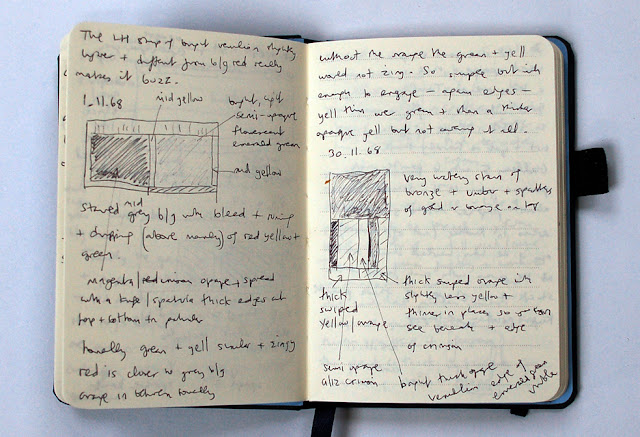 The LH strip of bright vermilion slightly
+ different from b/g red really
makes it buzz.
1.11.68
mid yellow
bright, light
semi-opaque
fluorescent
emerald green
mid yellow
red
Stained mid grey b/g with bleed + runny
+ dripping (above mainly) of red yellow +
green.
magenta/ opaque + spread
with a knife/spatula thick edges at
top + bottom in particular
tonally green + yell similar + zingy
red is closer to grey b/g
orange in between tonally
without the orange the green + yell
would not zing. So simple but with
enough to engage – again edges –
yell thin wc green + then a thicker
opaque yell but not covering it all.
30.11.68
very watery stain of
bronze + umber + speckles
of gold + orange on top
thick
swiped
yellow/orange
thick swiped orange with
slightly less yellow +
thinner in places so you can
see beneath + edge
of crimson
semi opaque
aliz crimson
bright thick opaque
vermilion edge of
emerald green
visible